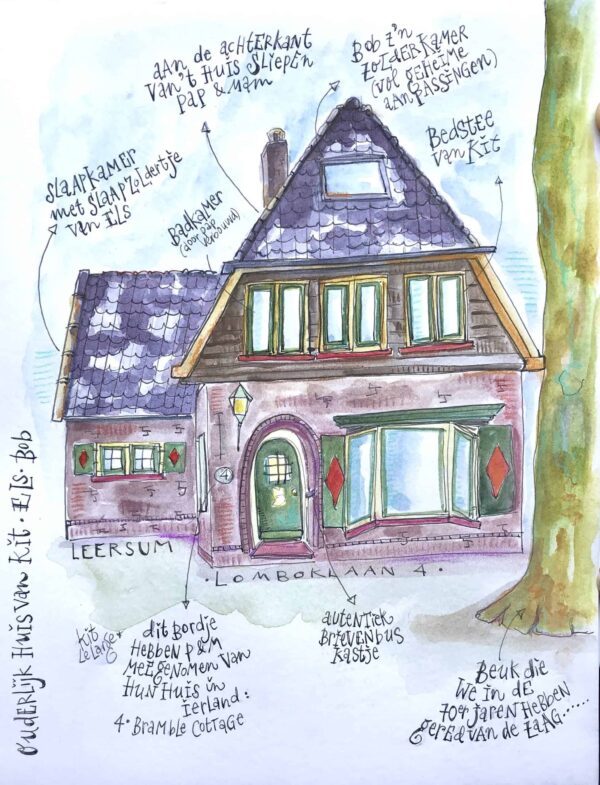 aan de achterkant
van 't huis sliepen
pap & mam
Bob z'n
zolderkamer
(vol geheime
aanpassingen)
Bedstee
van Kit
slaapkamer
met slaapzoldertje
van Els
Badkamer
(door pap
verbouwd)
4
Leersum
Lomboklaan 4.
Ouderlijk Huis van Kit · Els · Bob
Kit
Le Large
dit bordje
hebben P&M
meegenomen van
hun huis in
Ierland:
4· Bramble Cottage
autentiek
brievenbus
kastje
Beuk die
we in de
70er jaren hebben
gered van de zaag......